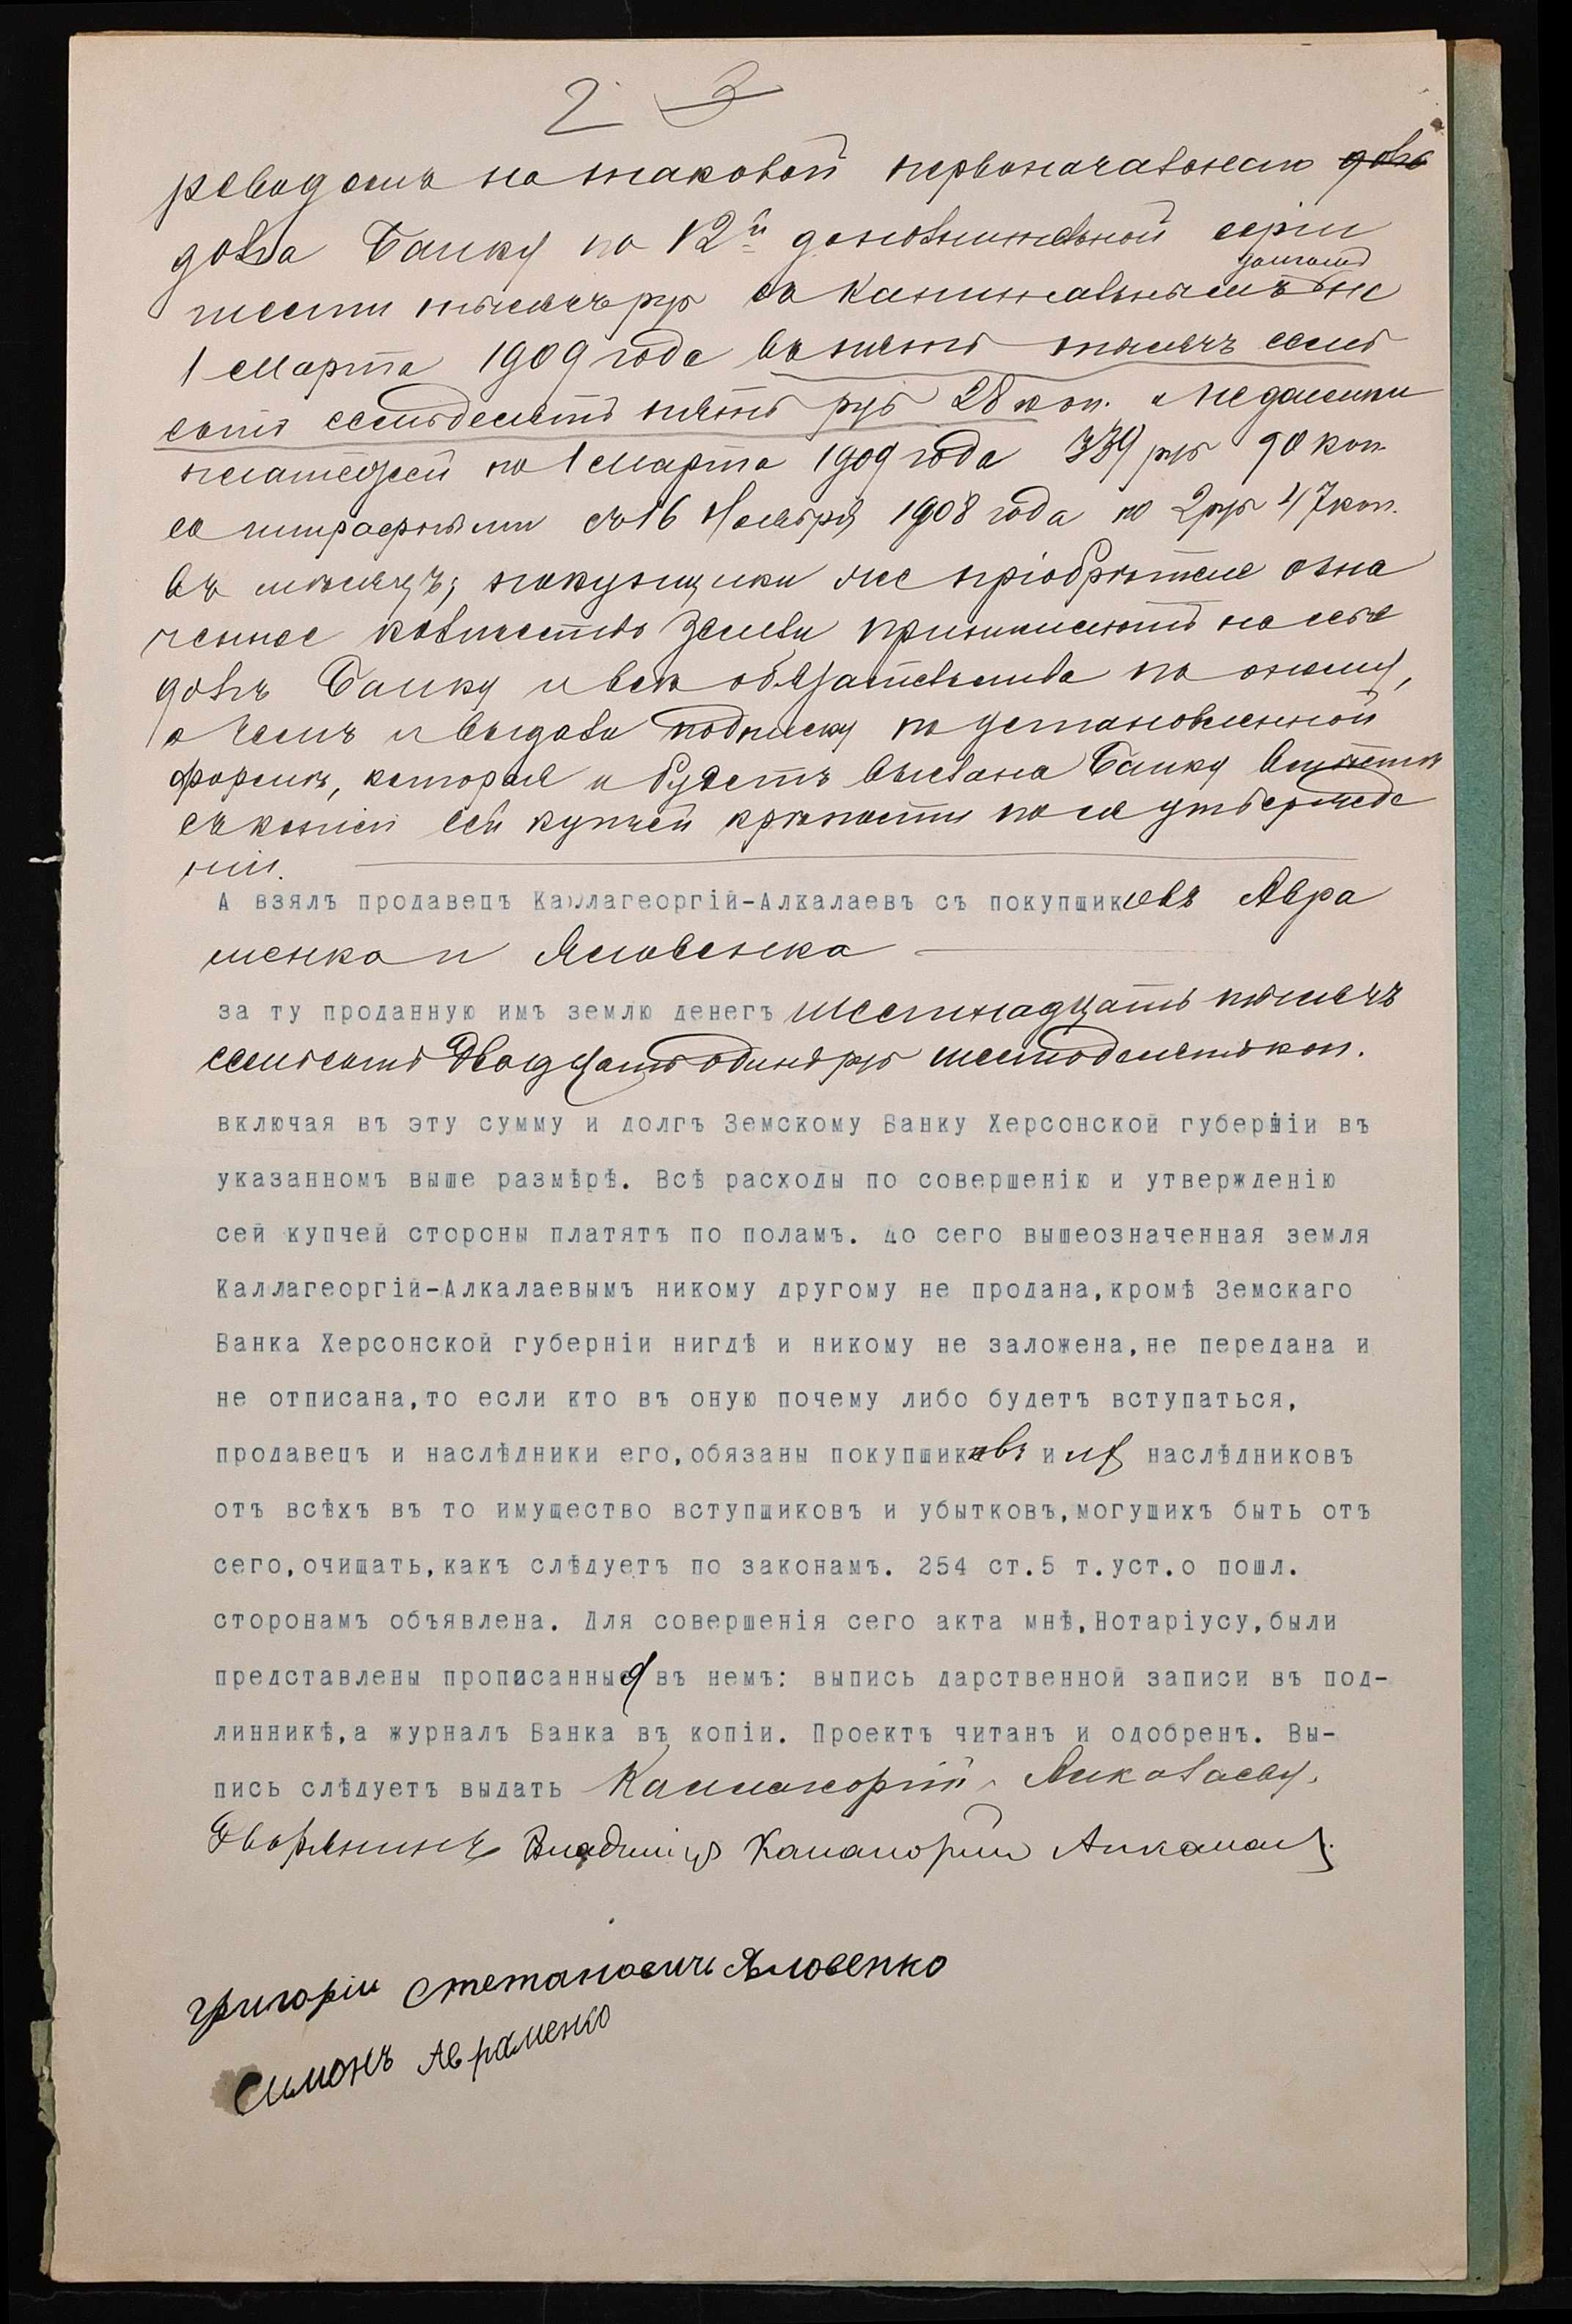 2 3
реводомъ на таковой первоначальнаго долга
долга Банку по 12й дополнительной серіи
шести тысячъ руб съ капитальнымъ долгомъ на
1 Марта 1909 года въ пять тысячъ семь
сотъ семьдесятъ пять руб 28 коп. и недоимки
платежей по 1 Марта 1909 года 339 руб 90 коп.
со штрафными съ 16 Ноября 1908 года по 2 руб 47 коп.
въ мѣсяцъ; покупщики же пріобрѣтая озна
ченное количество земли принимаютъ на себя
долгъ Банку и всѣ обязательства по оному,
о чемъ и выдали подписку по установленной
формѣ, которая и будетъ выслана Банку вмѣстѣ
съ копіей сей купчей крѣпости по ея утвержде
ніи.
А взялъ продавецъ Каллагеоргій-Алкалаевъ съ покупщиковъ Авра
менка и Яловенка
за ту проданную имъ землю денегъ шестнадцать тысячъ
семьсотъ двадцать одинъ руб шестьдесятъ коп.
включая въ эту сумму и долгъ Земскому Банку Херсонской губерніи въ
указанномъ выше размѣрѣ. Всѣ расходы по совершенію и утвержденію
сей купчей стороны платятъ по поламъ. До сего вышеозначенная земля
Каллагеоргій-Алкалаевымъ никому другому не продана, кромѣ Земскаго
Банка Херсонской губерніи нигдѣ и никому не заложена, не передана и
не отписана, то если кто въ оную почему либо будетъ вступаться,
продавецъ и наслѣдники его, обязаны покупщиковъ и ихъ наслѣдниковъ
отъ всѣхъ въ то имущество вступщиковъ и убытковъ, могущихъ быть отъ
сего, очищать, какъ слѣдуетъ по законамъ. 254 ст. 5 т. уст. о пошл.
сторонамъ объявлена. Для совершенія сего акта мнѣ, Нотаріусу, были
представлены прописанныя въ немъ: выпись дарственной записи въ под-
линникѣ, а журналъ Банка въ копіи. Проектъ читанъ и одобренъ. Вы-
пись слѣдуетъ выдать Каллагеоргій-Алкалаеву.
Дворянинъ Владиміръ Калагеоргій Алкалаевъ
Григорій Степановичъ Яловенко
Симонъ Авраменко